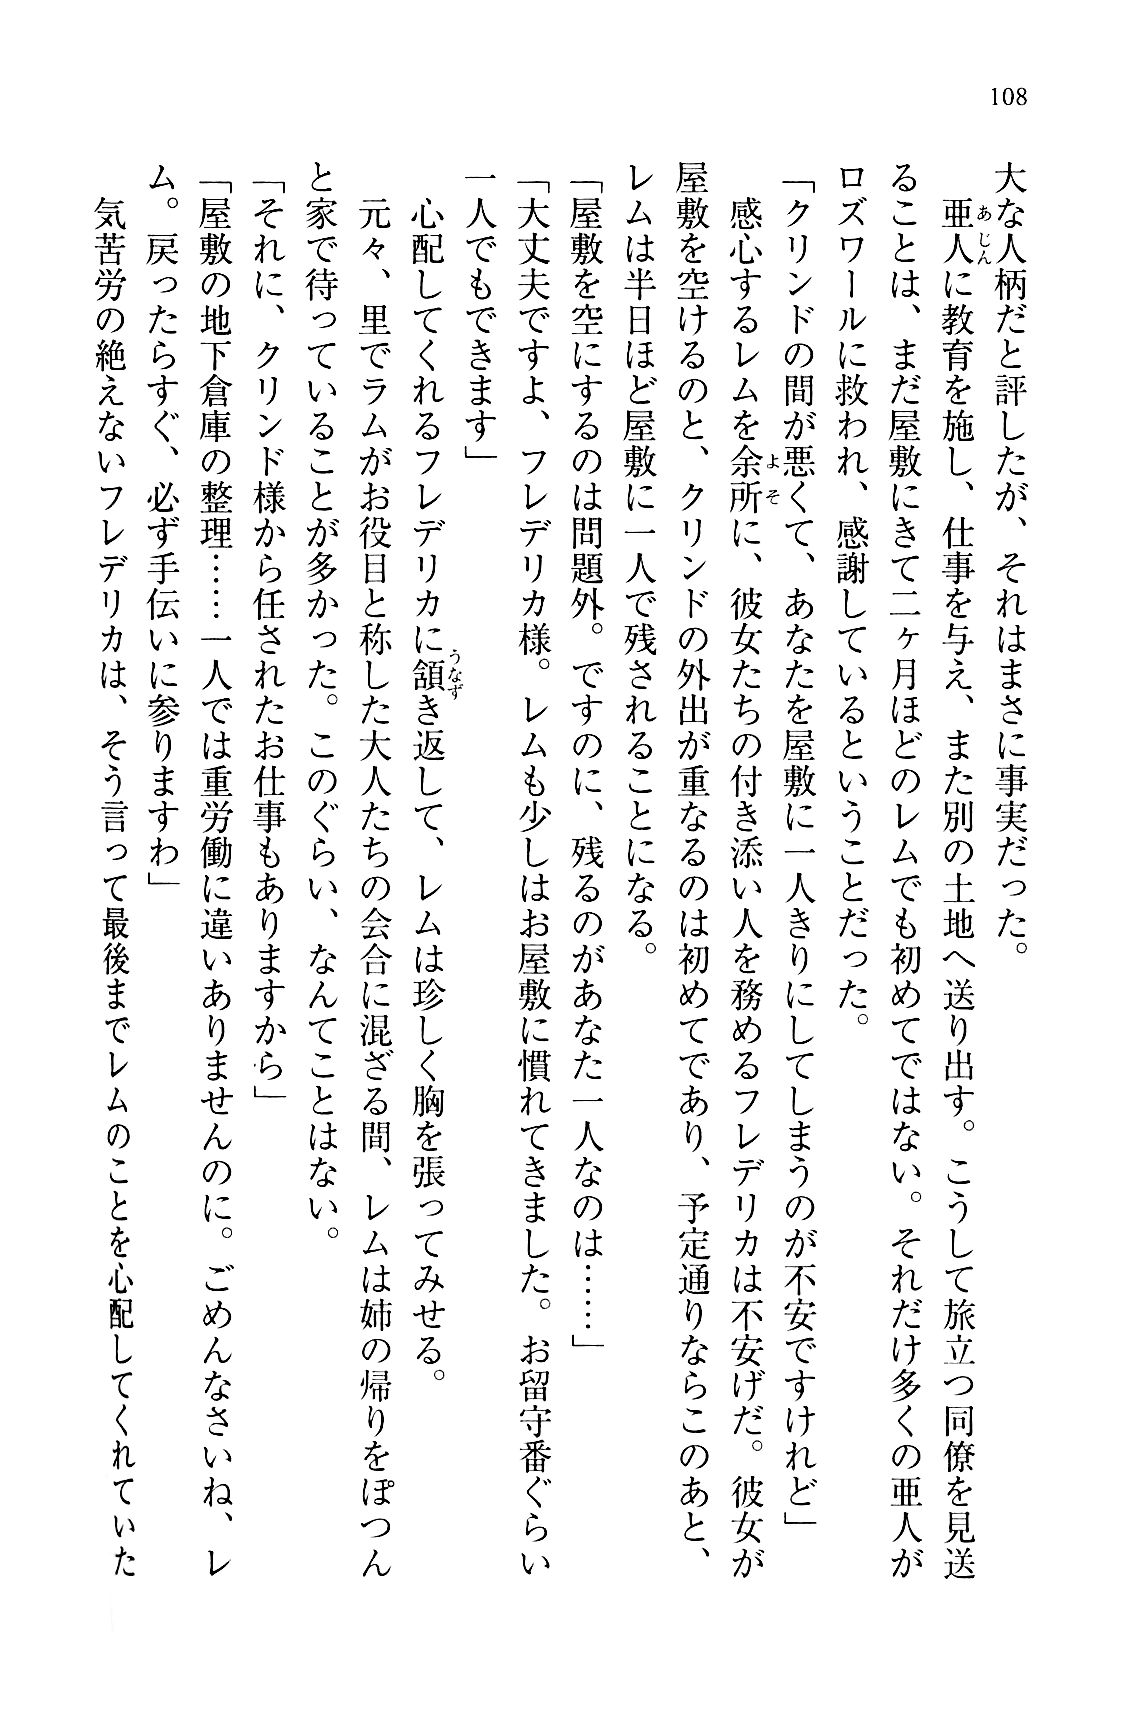 108
大な人柄だと評したが、それはまさに事実だった。
　亜人に教育を施し、仕事を与え、また別の土地へ送り出す。こうして旅立つ同僚を見送
ることは、まだ屋敷にきて二ヶ月ほどのレムでも初めてではない。それだけ多くの亜人が
ロズワールに救われ、感謝しているということだった。
「クリンドの間が悪くて、あなたを屋敷に一人きりにしてしまうのが不安ですけれど」
　感心するレムを余所に、彼女たちの付き添い人を務めるフレデリカは不安げだ。彼女が
屋敷を空けるのと、クリンドの外出が重なるのは初めてであり、予定通りならこのあと、
レムは半日ほど屋敷に一人で残されることになる。
「屋敷を空にするのは問題外。ですのに、残るのがあなた一人なのは……」
「大丈夫ですよ、フレデリカ様。レムも少しはお屋敷に慣れてきました。お留守番ぐらい
一人でもできます」
　心配してくれるフレデリカに頷き返して、レムは珍しく胸を張ってみせる。
　元々、里でラムがお役目と称した大人たちの会合に混ざる間、レムは姉の帰りをぽつん
と家で待っていることが多かった。このぐらい、なんてことはない。
「それに、クリンド様から任されたお仕事もありますから」
「屋敷の地下倉庫の整理……一人では重労働に違いありませんのに。ごめんなさいね、レ
ム。戻ったらすぐ、必ず手伝いに参りますわ」
　気苦労の絶えないフレデリカは、そう言って最後までレムのことを心配してくれていた